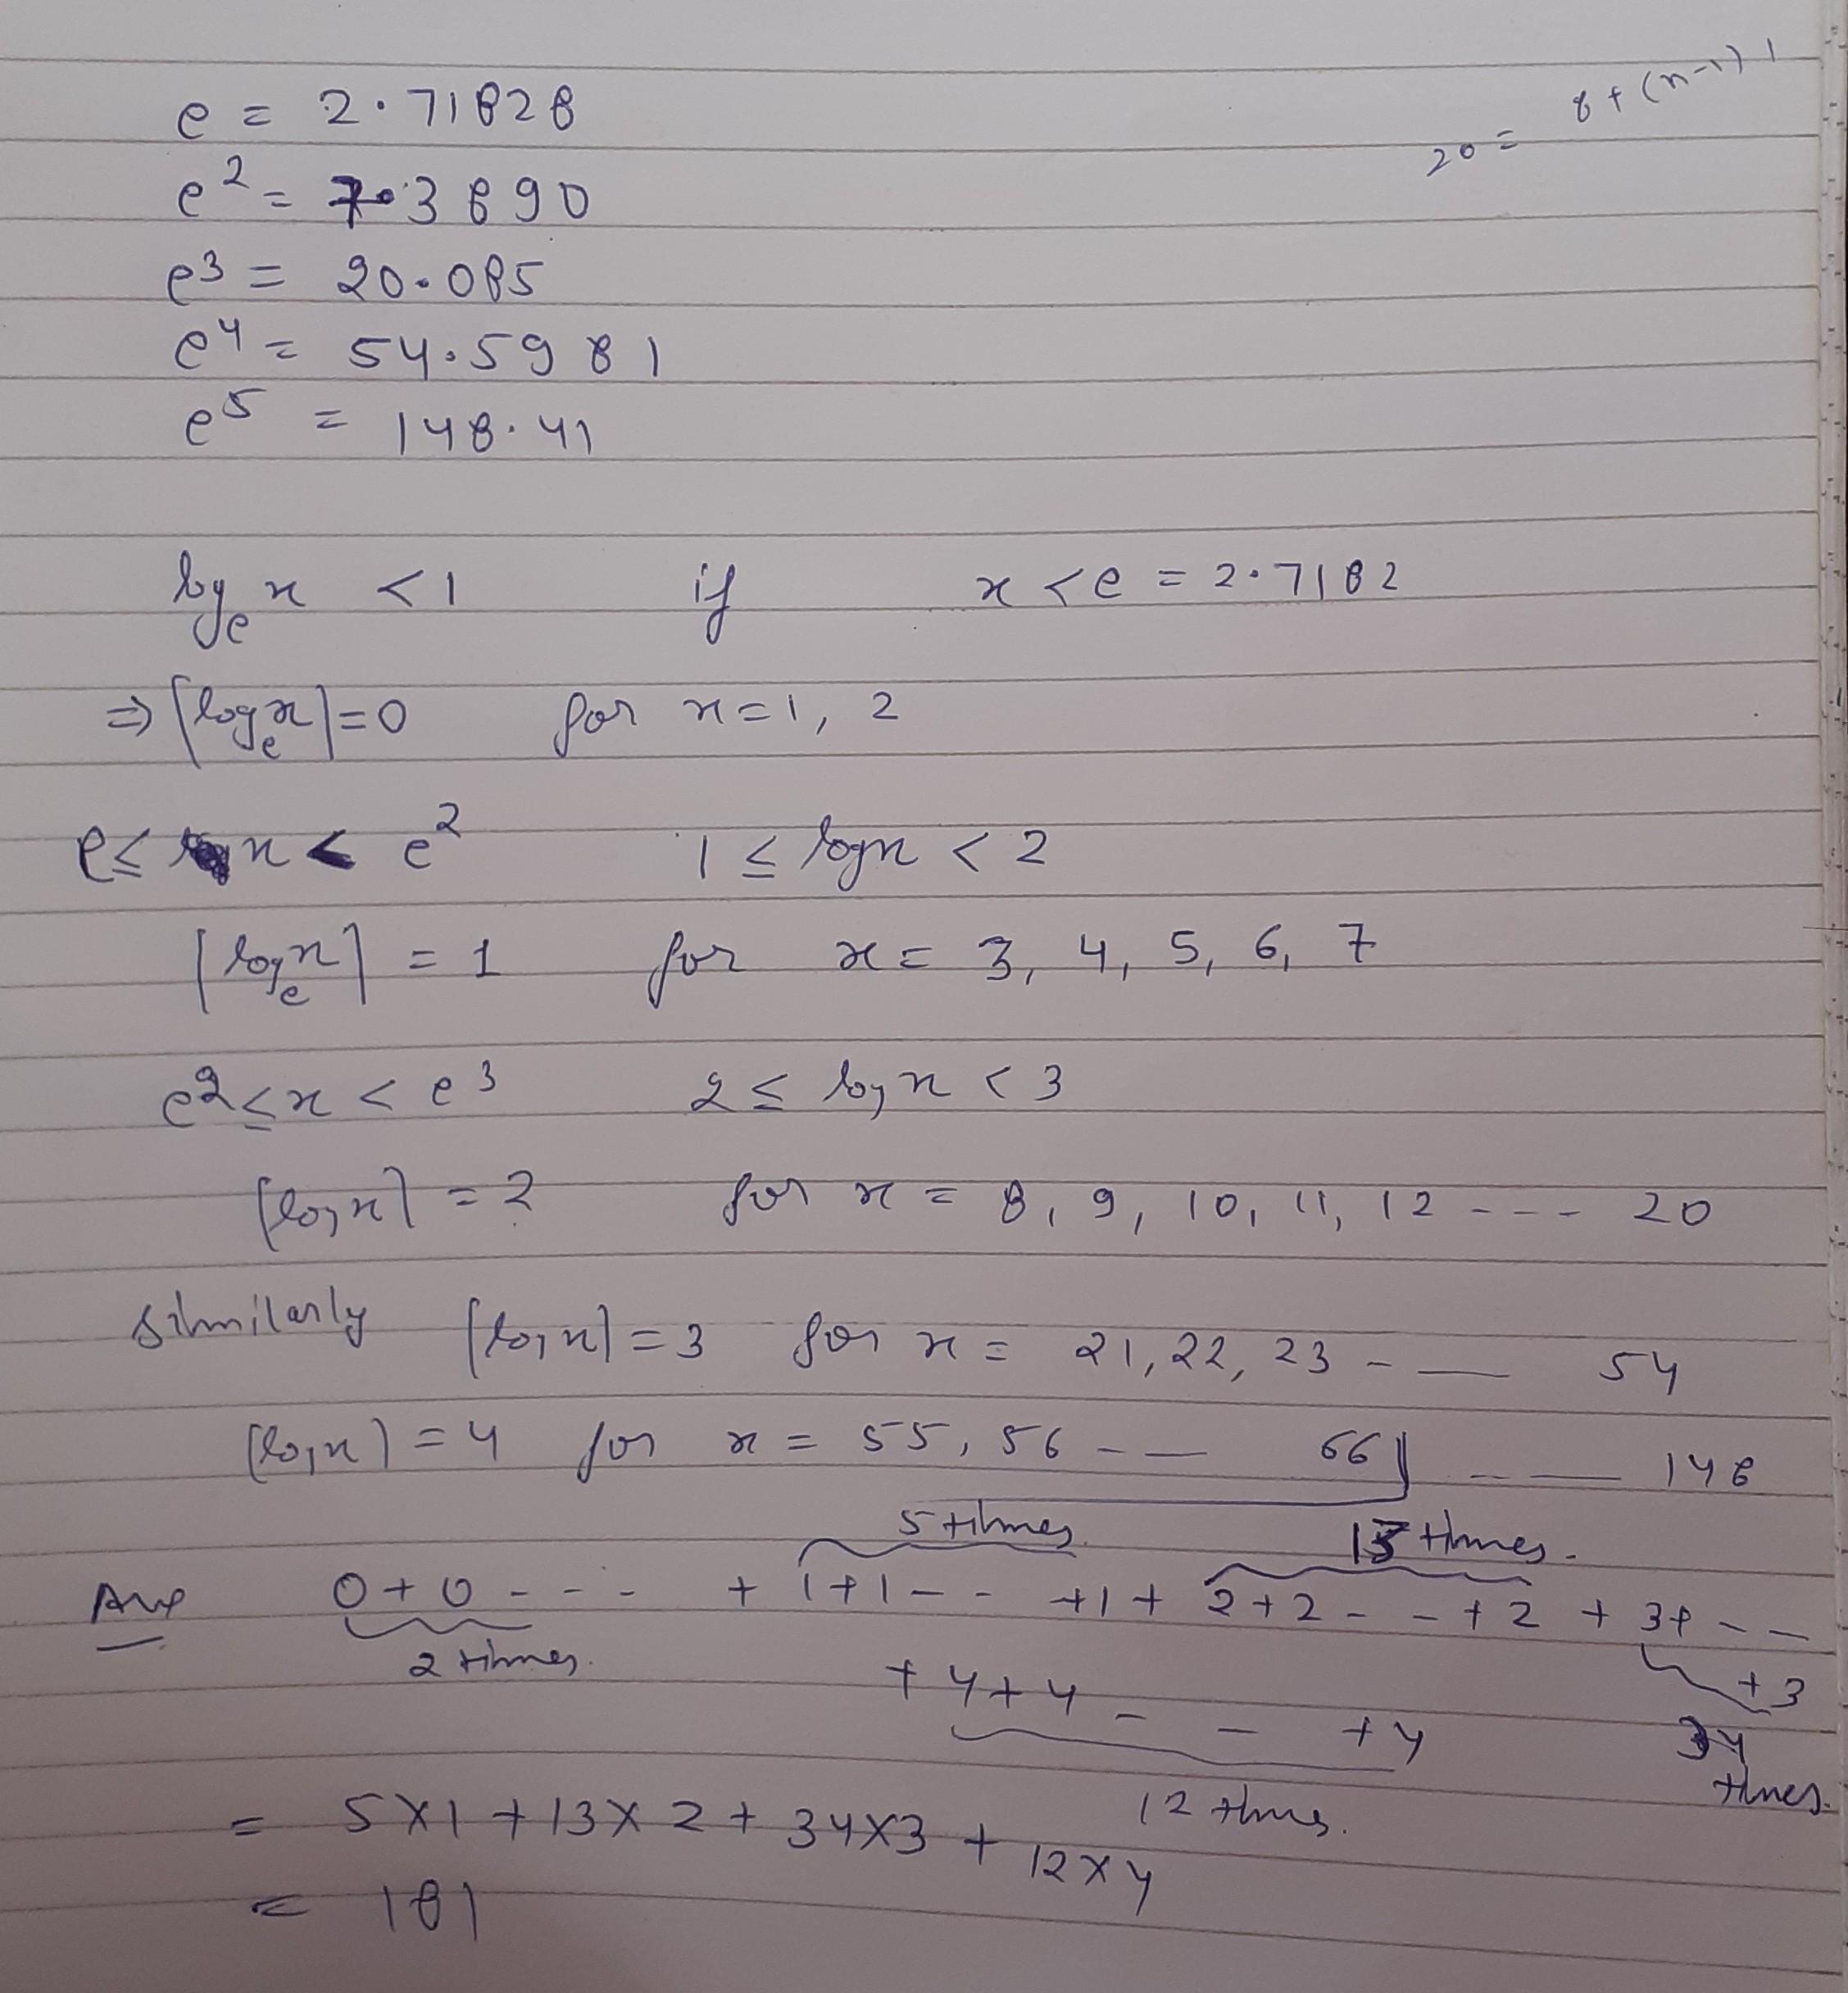 20 = 8 + (n-1) 1
e = 2.71828
e² = 7.3890
e³ = 20.085
e⁴ = 54.5981
e⁵ = 148.41
logₑ x < 1 if x < e = 2.7182
⇒ [logₑ x] = 0 for x = 1, 2
e ≤ x < e² 1 ≤ log x < 2
[logₑ x] = 1 for x = 3, 4, 5, 6, 7
e² ≤ x < e³ 2 ≤ log x < 3
[log x] = 2 for x = 8, 9, 10, 11, 12 --- 20
Similarly [log x] = 3 for x = 21, 22, 23 - — 54
[log x] = 4 for x = 55, 56 - — 66 - — 148
5 times 13 times.
Ans 0 + 0 - - - + 1 + 1 - - + 1 + 2 + 2 - - + 2 + 3 + - -
2 times. + 4 + 4 - - + 4 + 3
34 times.
12 times.
= 5 × 1 + 13 × 2 + 34 × 3 + 12 × 4
= 181